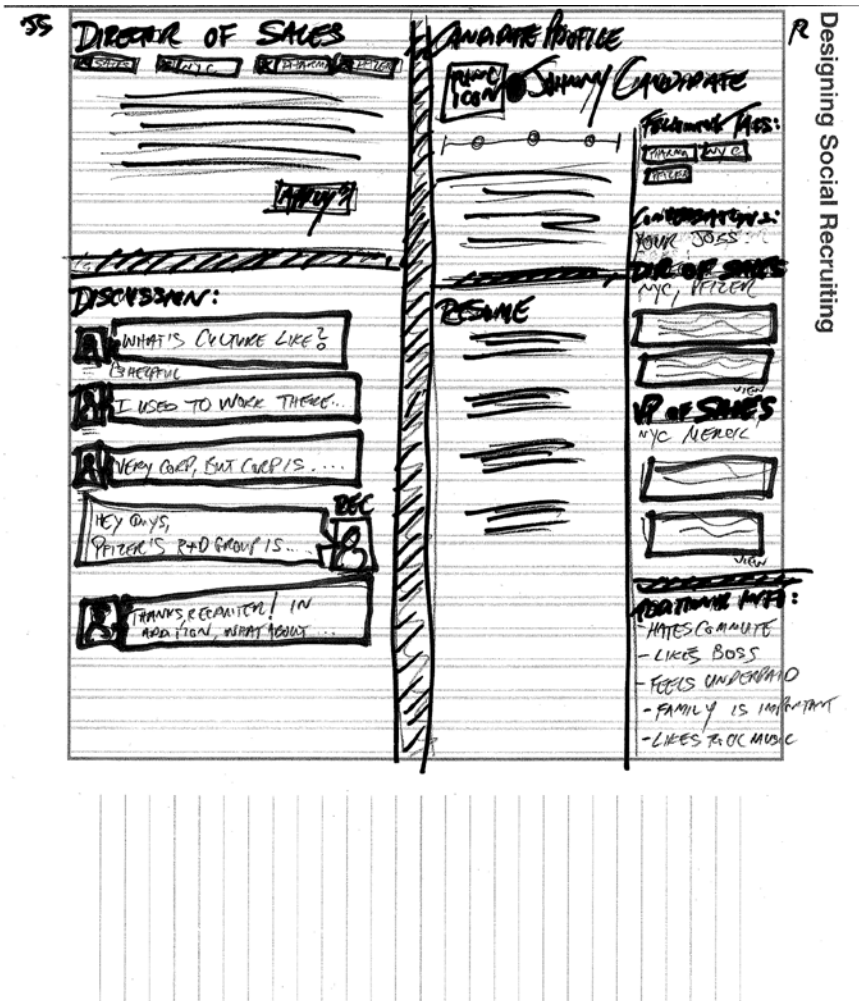 JS
DIRECTOR OF SALES
SALES NYC PHARMA PFIZER
APPLY
DISCUSSION:
WHAT'S CULTURE LIKE?
HELPFUL
I USED TO WORK THERE...
VERY CORP, BUT CORP IS....
REC
HEY GUYS,
PFIZER'S R+D GROUP IS...
THANKS, RECRUITER! IN
ADDITION, WHAT ABOUT ...
CANDIDATE PROFILE
ICON
JOHNNY CANDIDATE
RESUME
FOLLOWING TAGS:
PHARMA NYC
PFIZER
CONVERSATIONS:
YOUR JOBS:
DIR OF SALES
NYC, PFIZER
VIEW
VP OF SALES
NYC MERCK
VIEW
ADDITIONAL INFO:
- HATES COMMUTE
- LIKES BOSS
- FEELS UNDERPAID
- FAMILY IS IMPORTANT
- LIKES ROCK MUSIC
R
Designing Social Recruiting